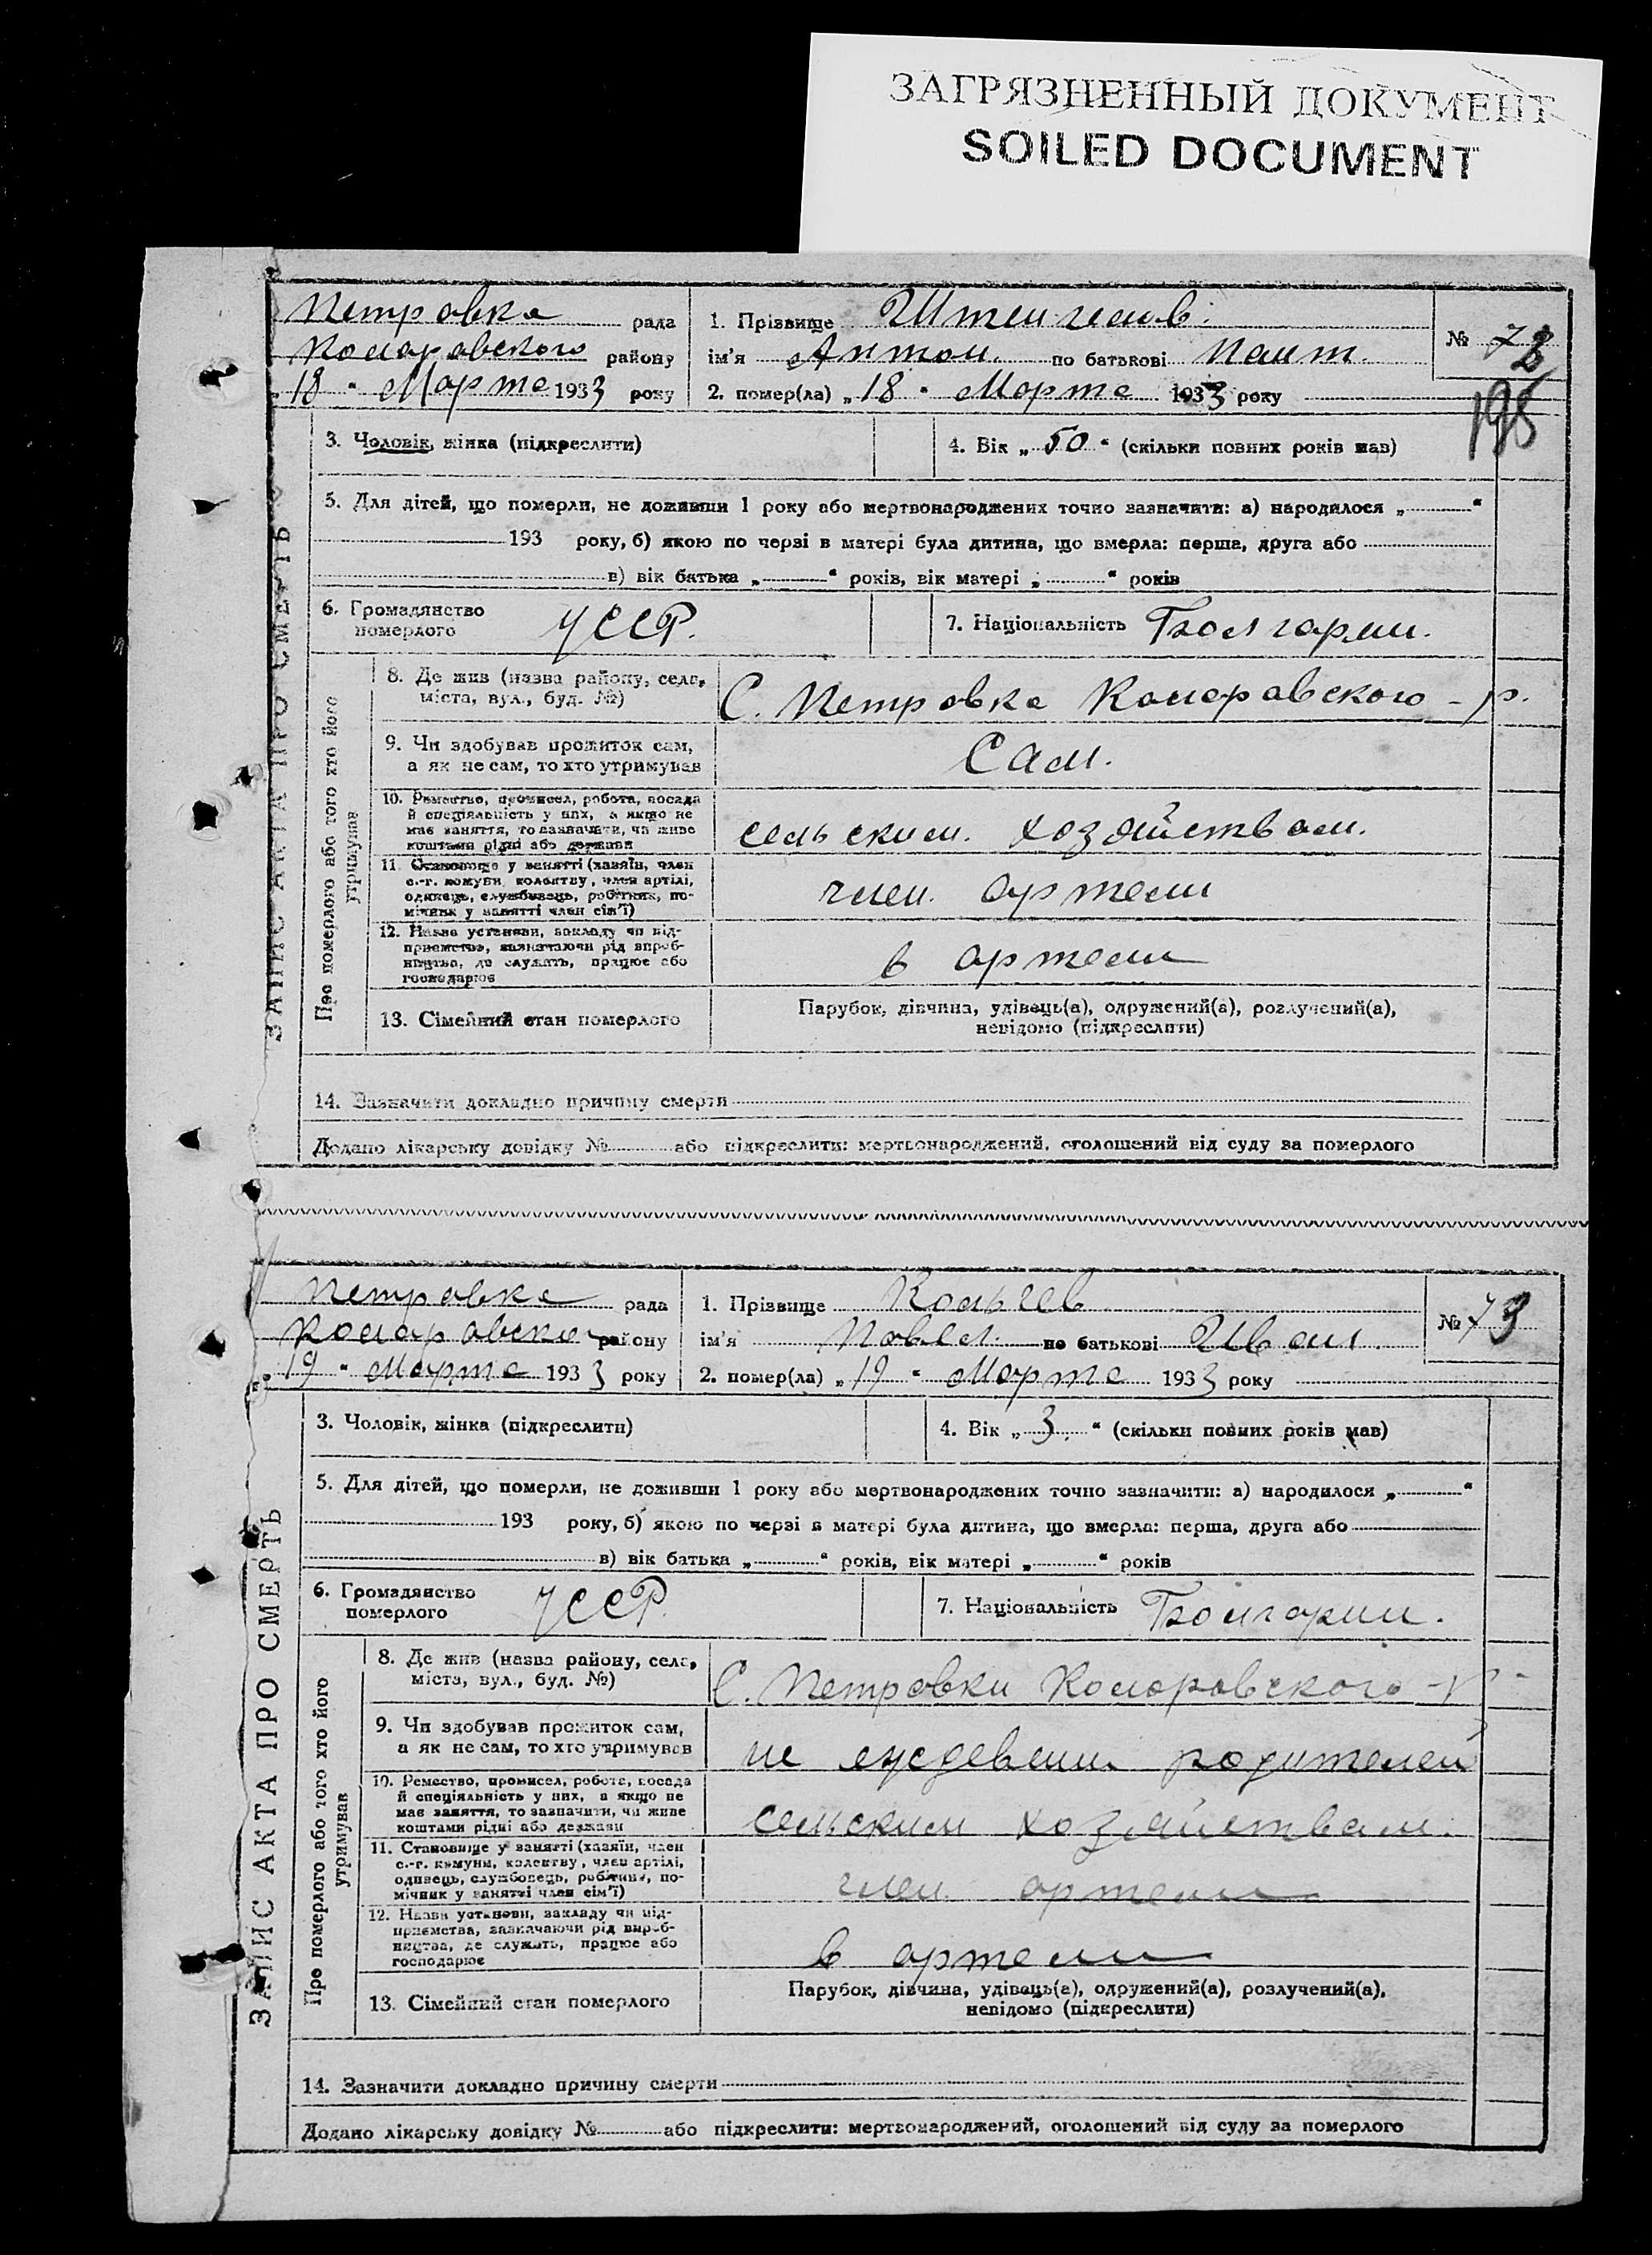 ЗАГРЯЗНЕННЫЙ ДОКУМЕНТ
SOILED DOCUMENT
ЗАПИС АКТА ПРО СМЕРТЬ
Петровка рада
Комаровского району
18 " Марта 1933 року
1. Прізвище
ім'я Антон. по батькові
2. помер(ла) „ 18 " Марта 1933 року
№ 72
198
3. Чоловік, жінка (підкреслити)
4. Вік „ 50 " (скільки повних років мав)
5. Для дітей, що померли, не доживши 1 року або мертвонароджених точно зазначити: а) народилося „ "
193 року, б) якою по черзі в матері була дитина, що вмерла: перша, друга або
в) вік батька „ " років, вік матері „ " років
6. Громадянство
померлого
УССР.
7. Національність Болгарин.
Про померлого або того хто його
утримував
8. Де жив (назва району, села,
міста, вул., буд. №)
С. Петровка Комаровского - р.
9. Чи здобував прожиток сам,
а як не сам, то хто утримував
Сам.
10. Ремество, промисел, робота, посада
й спеціяльність у них, а якщо не
має заняття, то зазначити, чи живе
коштами рідні або держави
сельским. хозяйствам.
11. Становище у занятті (хазяїн, член
с.-г. комуни, колективу, член артілі,
одинець, службовець, робітник, по-
мічник у занятті член сім'ї)
член. артели
12. Назва установи, закладу чи під-
приємства, зазначаючи рід вироб-
ництва, де служить, працює або
господарює
в артели
13. Сімейний стан померлого
Парубок, дівчина, удівець(а), одружений(а), розлучений(а),
невідомо (підкреслити)
14. Зазначити докладно причину смерти
Додано лікарську довідку № або підкреслити: мертвонароджений, оголошений від суду за померлого
ЗАПИС АКТА ПРО СМЕРТЬ
Петровка рада
Комаровского району
19 " Марта 1933 року
1. Прізвище Кольчев
ім'я Павел. по батькові Иван.
2. помер(ла) „ 19 " Марта 1933 року
№ 73
3. Чоловік, жінка (підкреслити)
4. Вік „ 3. " (скільки повних років мав)
5. Для дітей, що померли, не доживши 1 року або мертвонароджених точно зазначити: а) народилося „ "
193 року, б) якою по черзі в матері була дитина, що вмерла: перша, друга або
в) вік батька „ " років, вік матері „ " років
6. Громадянство
померлого
УССР.
7. Національність Болгарин.
Про померлого або того хто його
утримував
8. Де жив (назва району, села,
міста, вул., буд. №)
С. Петровки Комаровского - р -
9. Чи здобував прожиток сам,
а як не сам, то хто утримував
на родителей
10. Ремество, промисел, робота, посада
й спеціяльність у них, а якщо не
має заняття, то зазначити, чи живе
коштами рідні або держави
сельским хозяйствам.
11. Становище у занятті (хазяїн, член
с.-г. комуни, колективу, член артілі,
одинець, службовець, робітник, по-
мічник у занятті член сім'ї)
член. артели
12. Назва установи, закладу чи під-
приємства, зазначаючи рід вироб-
ництва, де служить, працює або
господарює
в артели
13. Сімейний стан померлого
Парубок, дівчина, удівець(а), одружений(а), розлучений(а),
невідомо (підкреслити)
14. Зазначити докладно причину смерти
Додано лікарську довідку № або підкреслити: мертвонароджений, оголошений від суду за померлого